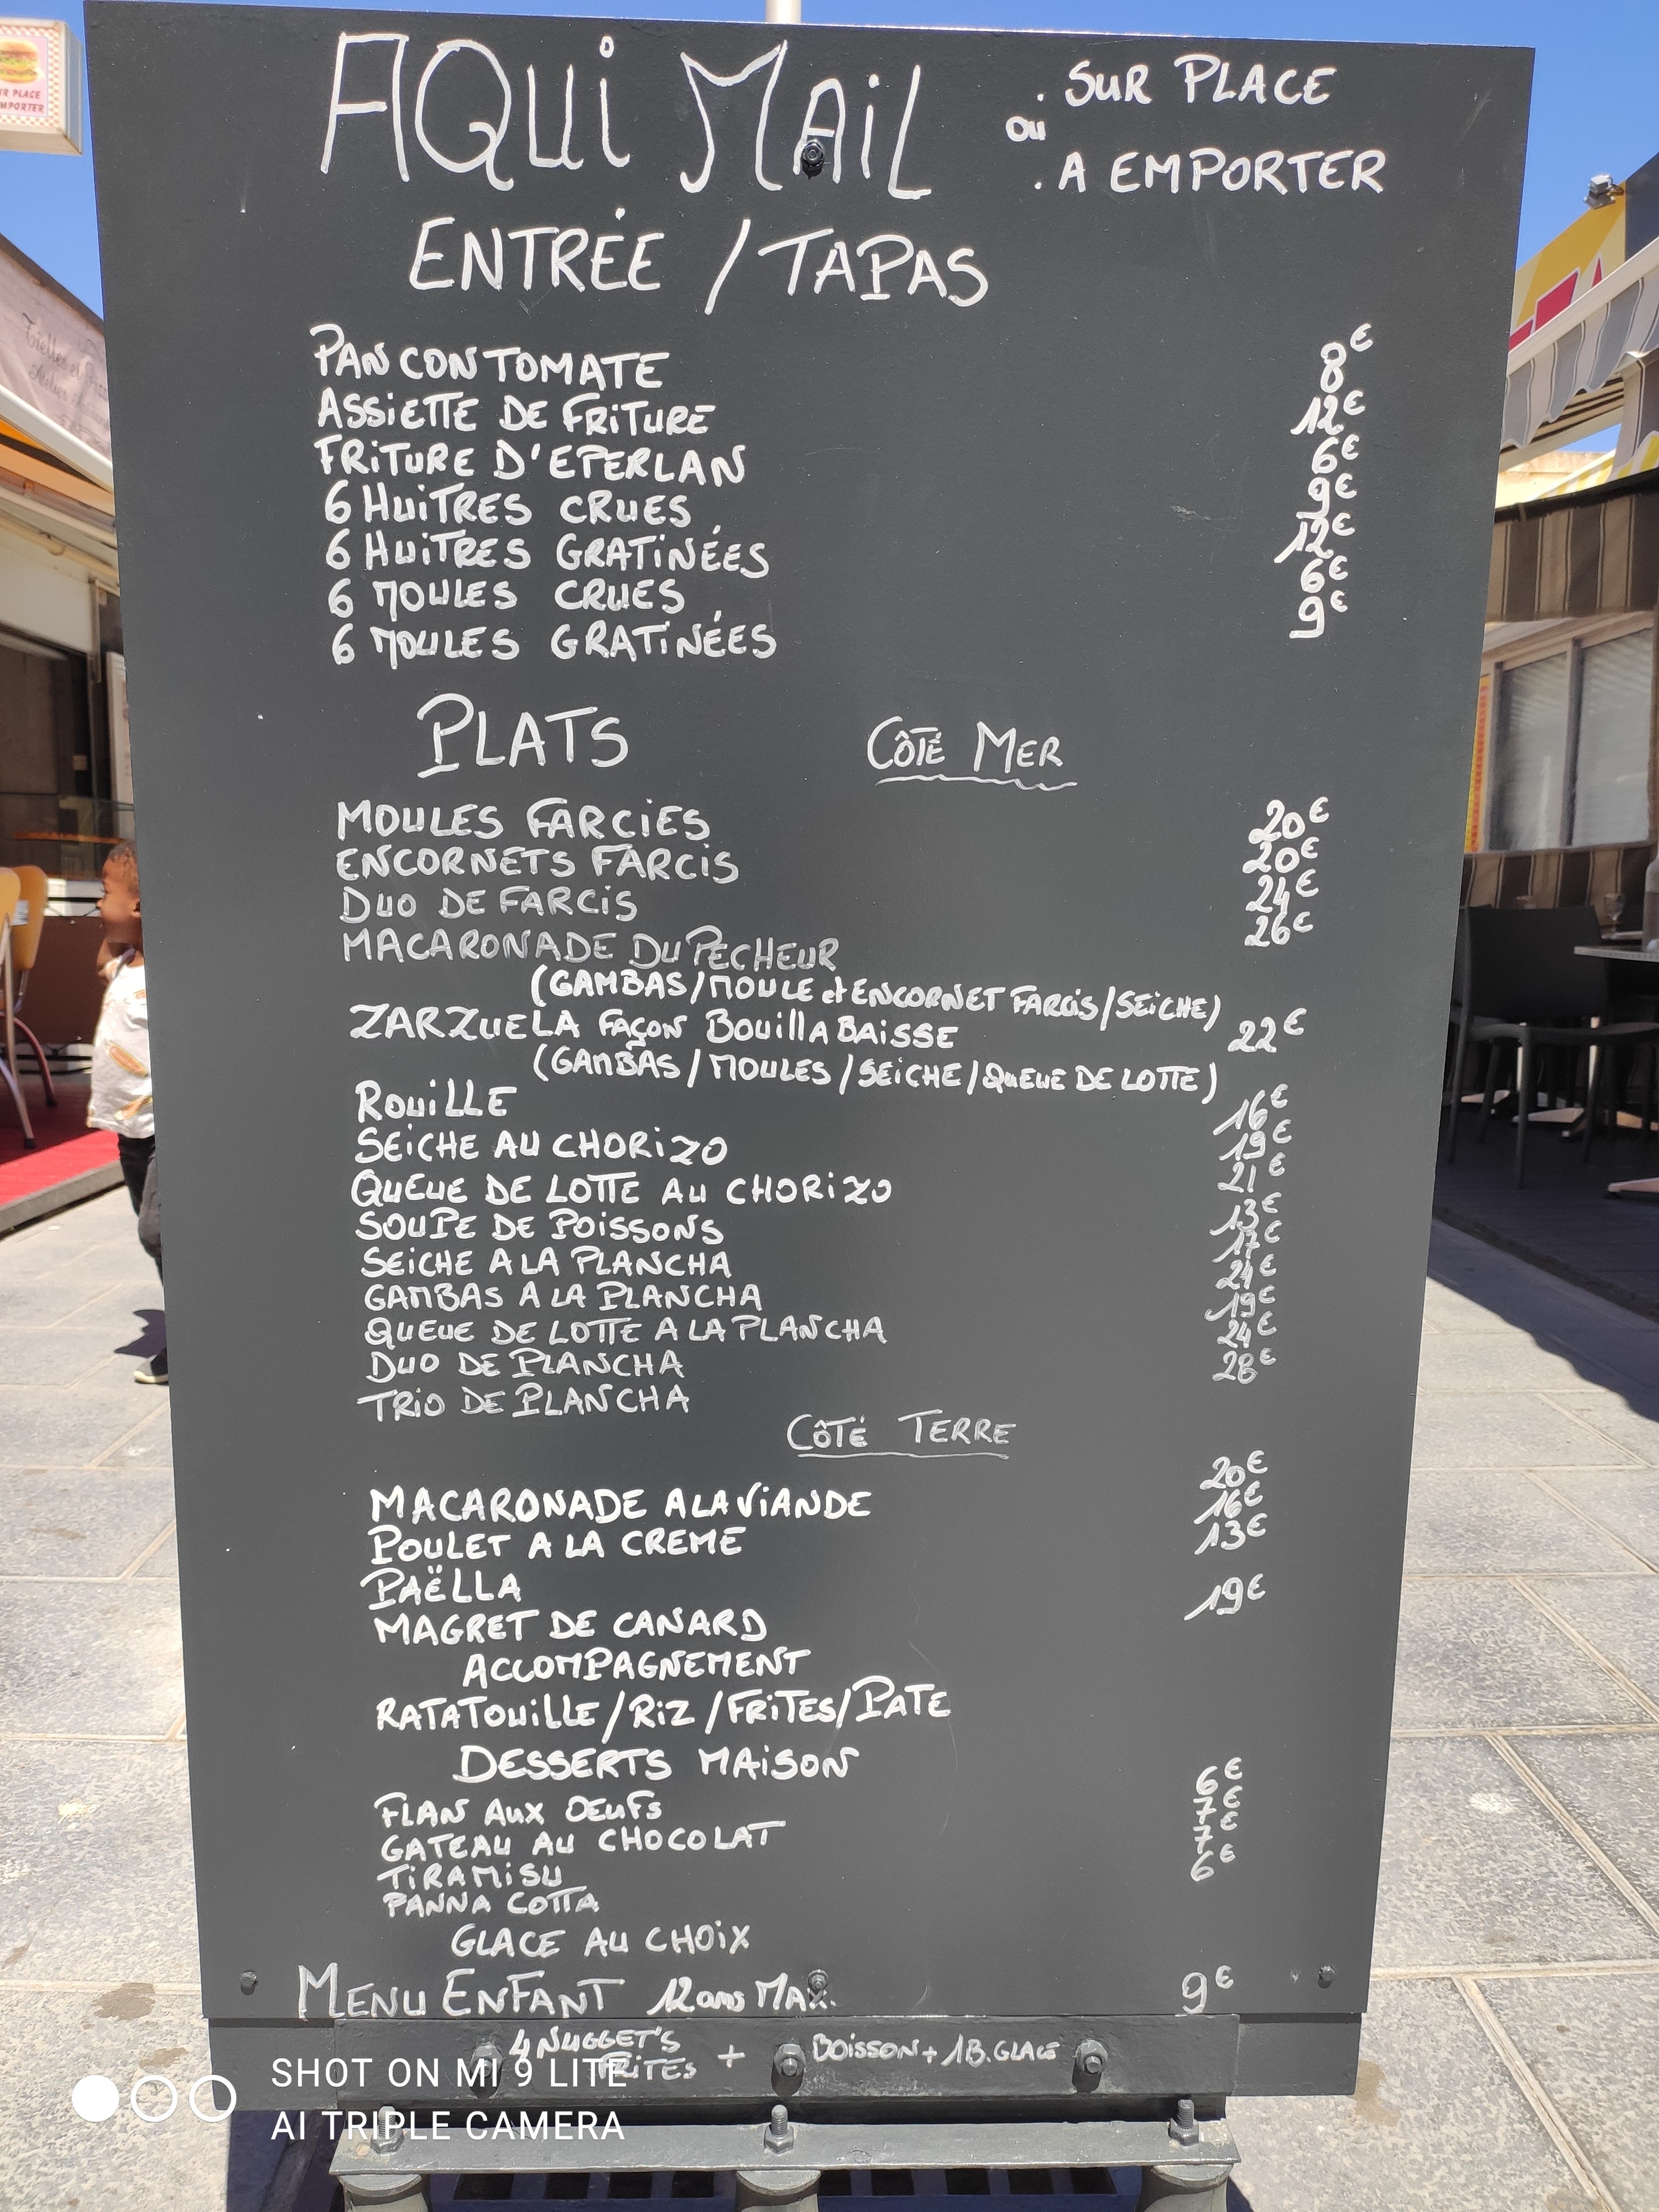 AQUI MAIL
. SUR PLACE
ou
. A EMPORTER
ENTRÉE / TAPAS
PAN CON TOMATE 8€
ASSIETTE DE FRITURE 12€
FRITURE D'EPERLAN 6€
6 HUITRES CRUES 9€
6 HUITRES GRATINÉES 12€
6 MOULES CRUES 6€
6 MOULES GRATINÉES 9€
PLATS CÔTÉ MER
MOULES FARCIES 20€
ENCORNETS FARCIS 20€
DUO DE FARCIS 24€
MACARONADE DU PECHEUR 26€
(GAMBAS/MOULE et ENCORNET FARCIS/SEICHE)
ZARZUELA FAÇON BOUILLABAISSE 22€
(GAMBAS/MOULES/SEICHE/QUEUE DE LOTTE)
ROUILLE 16€
SEICHE AU CHORIZO 19€
QUEUE DE LOTTE AU CHORIZO 21€
SOUPE DE POISSONS 13€
SEICHE A LA PLANCHA 17€
GAMBAS A LA PLANCHA 24€
QUEUE DE LOTTE A LA PLANCHA 19€
DUO DE PLANCHA 24€
TRIO DE PLANCHA 28€
CÔTÉ TERRE
MACARONADE A LA VIANDE 20€
POULET A LA CREME 16€
PAËLLA 13€
MAGRET DE CANARD 19€
ACCOMPAGNEMENT
RATATOUILLE/RIZ/FRITES/PATE
DESSERTS MAISON
FLAN AUX OEUFS 6€
GATEAU AU CHOCOLAT 7€
TIRAMISU 7€
PANNA COTTA 6€
GLACE AU CHOIX
MENU ENFANT 12 ans MAX. 9€
4 NUGGET'S
FRITES + BOISSON + 1B. GLACE
SHOT ON MI 9 LITE
AI TRIPLE CAMERA